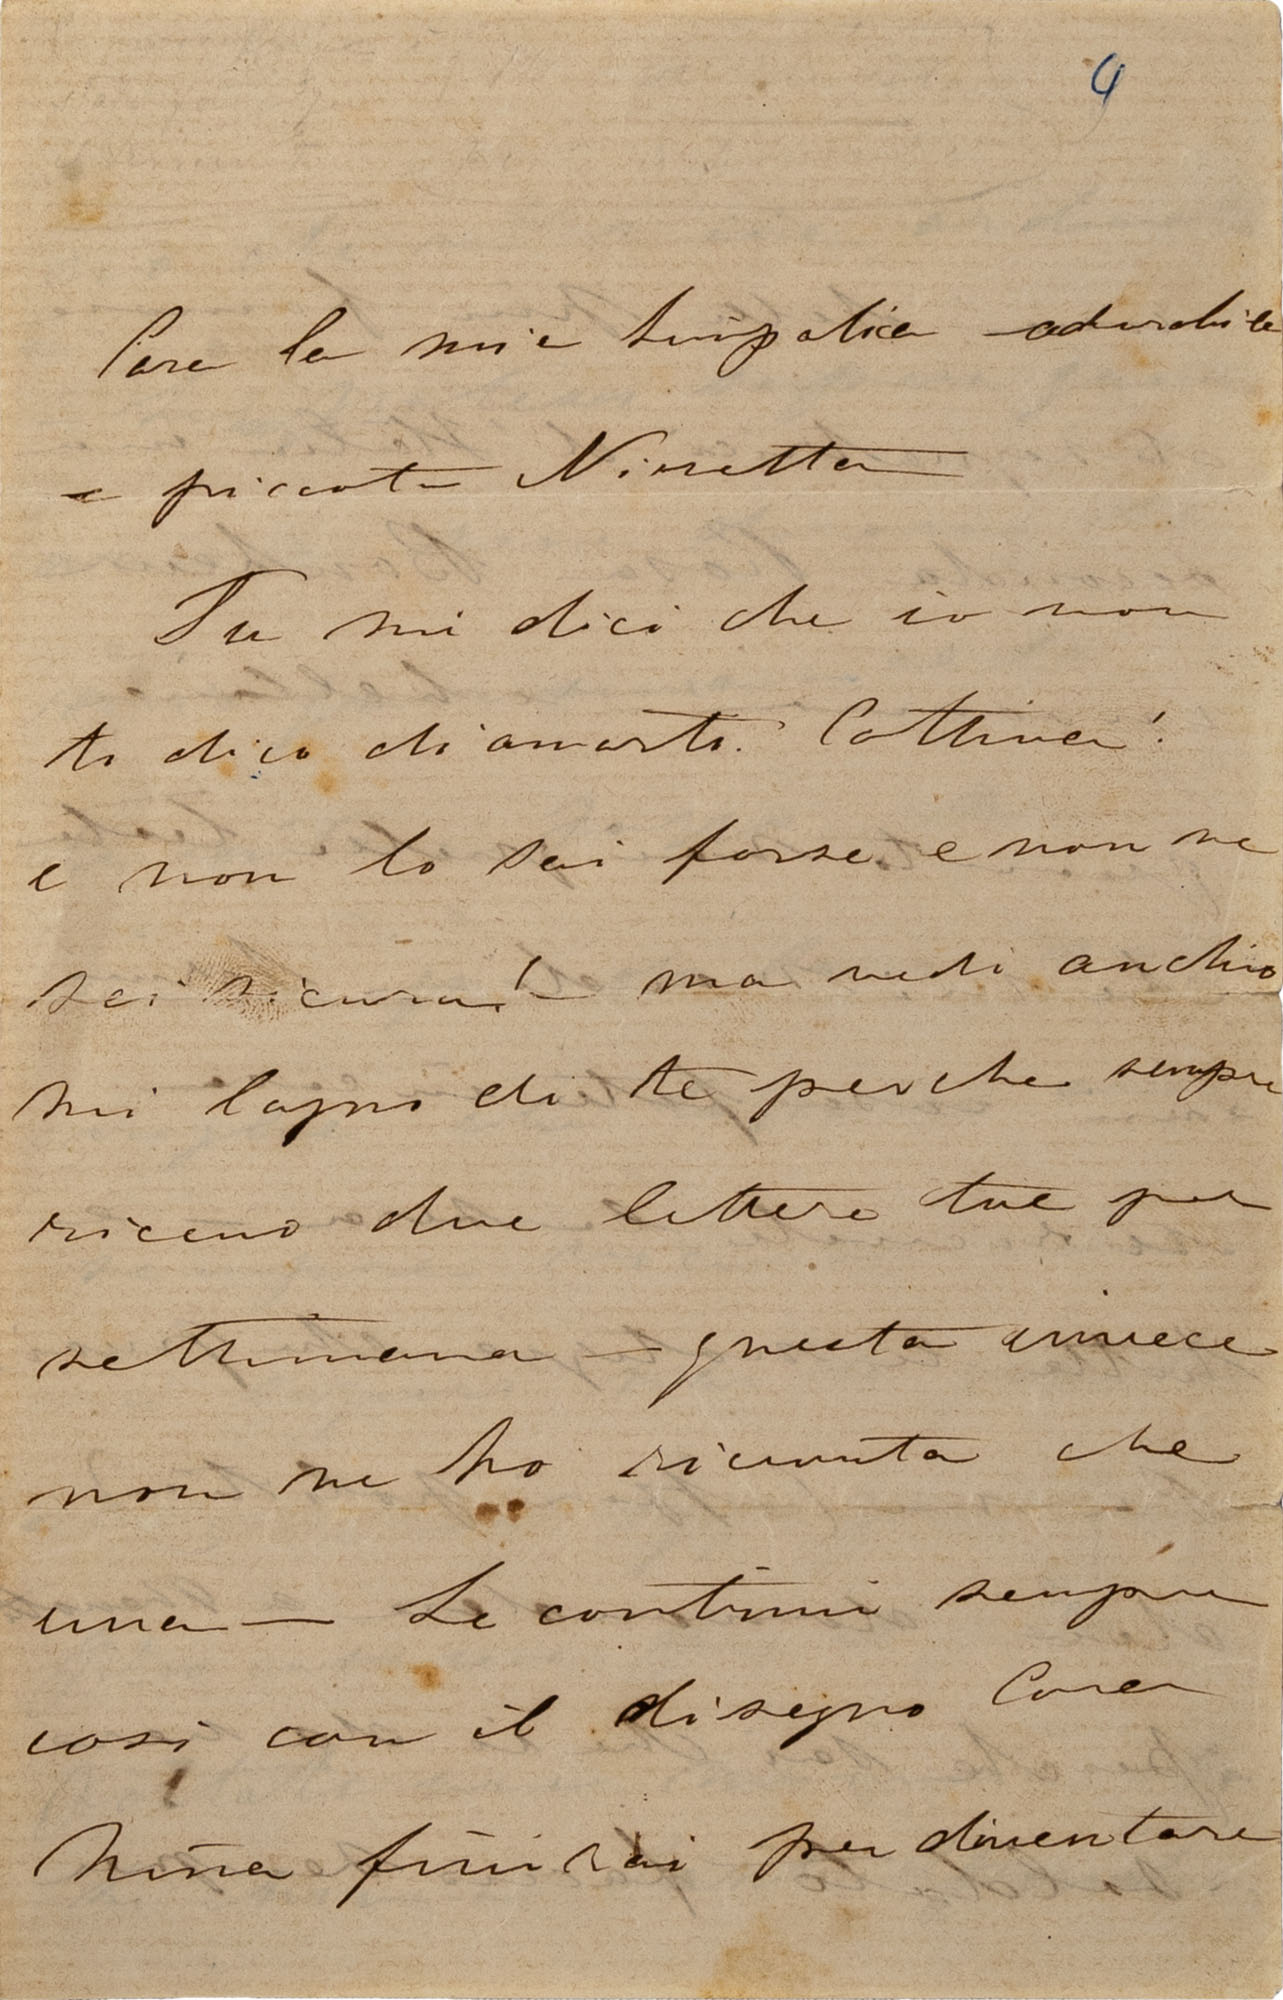 9
Cara la mia simpatica adorabile
e piccota Ninetta
Tu mi dici che io non
ti dico di amarti. Cattiva!
e non lo sai forse e non ne
sei sicura! ma vedi anchio
mi lagno di te perche sempre
ricevo due lettere tue per
settimana — questa invece
non ne ho ricevuta che
una — Se continui sempre
cosi con il disegno Cara
Nina finirai per diventare